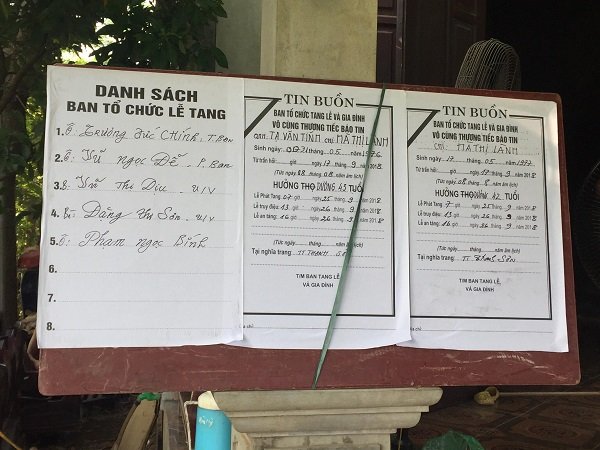 DANH SÁCH
BAN TỔ CHỨC LỄ TANG
1. Ô: Trương Đức CHÍNH. T. Ban
2. Ô: Vũ ngọc Đễ. P. Ban
3. B: Vũ Thị Dịu U/V
4. Bà: Đặng thị Sơn. U/V
5. Ô: Phạm ngọc Bính
6.
7.
8.
TIN BUỒN
BAN TỔ CHỨC TANG LỄ VÀ GIA ĐÌNH
VÔ CÙNG THƯƠNG TIẾC BÁO TIN
TẠ VĂN TÌNH chị MA THỊ LÀNH
Sinh ngày tháng 05 năm 1976
Từ trần hồi: giờ ngày 17 tháng 9 năm 2018
(Tức ngày 08 tháng 08 năm âm lịch)
HƯỞNG THỌ DƯƠNG 43 TUỔI
Lễ Phát Tang 07 giờ ngày 25 tháng 9 năm 2018
Lễ truy điệu: 13 giờ ngày 26 tháng 9 năm 2018
Lễ an táng: 16 giờ ngày 26 tháng 9 năm 2018
(Tức ngày tháng năm âm lịch)
Tại nghĩa trang: TT THANH
T/M BAN TANG LỄ,
VÀ GIA ĐÌNH
TIN BUỒN
BAN TỔ CHỨC TANG LỄ VÀ GIA ĐÌNH
VÔ CÙNG THƯƠNG TIẾC BÁO TIN
Chị: MA THỊ LÀNH
Sinh ngày 17 tháng 05 năm 1977
Từ trần hồi: giờ ngày 17 tháng 9 năm 2018
(Tức ngày 08 tháng 8 năm âm lịch)
HƯỞNG THỌ DƯƠNG 42 TUỔI
Lễ Phát Tang 7 giờ ngày 25 tháng 9 năm 2018
Lễ truy điệu: 13 giờ ngày 26 tháng 9 năm 2018
Lễ an táng: 16 giờ ngày 26 tháng 9 năm 2018
(Tức ngày tháng năm âm lịch)
Tại nghĩa trang: TT Thanh Sơn
T/M BAN TANG LỄ,
VÀ GIA ĐÌNH
chỉ: